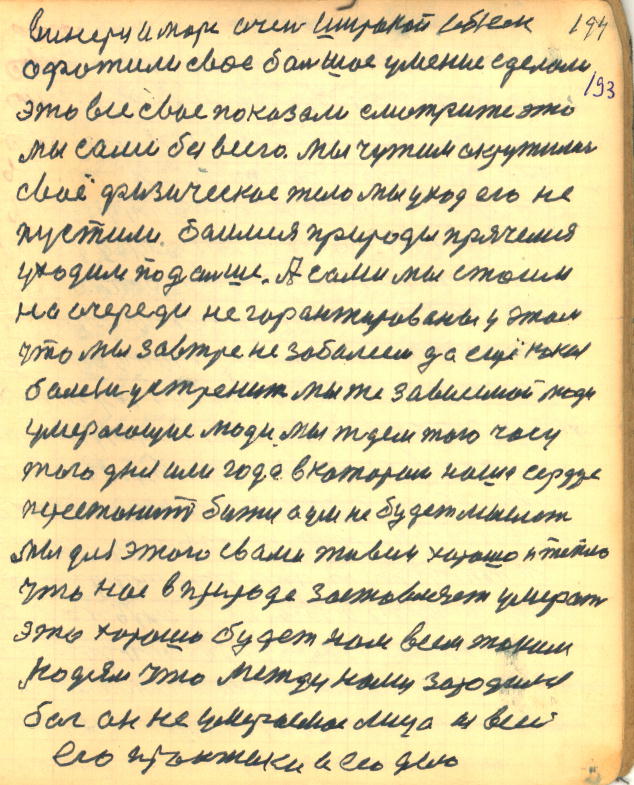 194
193
и море очен широкой
офотили свое большое умение сделали
это все свое показали смотрите это
мы сами без всего. мы чужим окружили
своё физическое тело мы уход его не
пустили. боимся природы прячемся
уходим подальше. А сами мы стоим
на очереди не горантированы у этом
что мы завтре не заболеем да ещё какая
мы же зависимой люди
умерающие люди мы ждем того часу
того дня или года в катором наше сердце
перестанит а ум не будет мыслит
мы для этого свами живем хорошо и тепло
что нас в природе заставляет умерат
это хорошо будет нам всем таким
людям что между нами зародился
бог он не умераемое лицо и всей
его практики и его делу